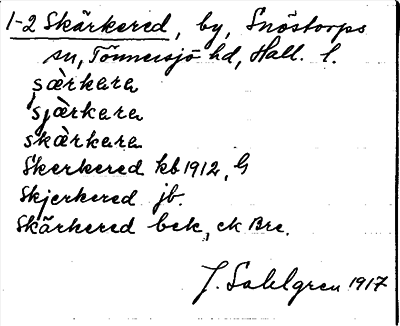 1-2 Skärkered, by, Snöstorps
sn, Tönnersjö hd, Hall. l.
sæ̀rkara
sjæ̀rkara
skæ̀rkara
Skerkered kb 1912, G
Skjerkered jb.
Skärkered bek, ck Bre.
J. Sahlgren 1917